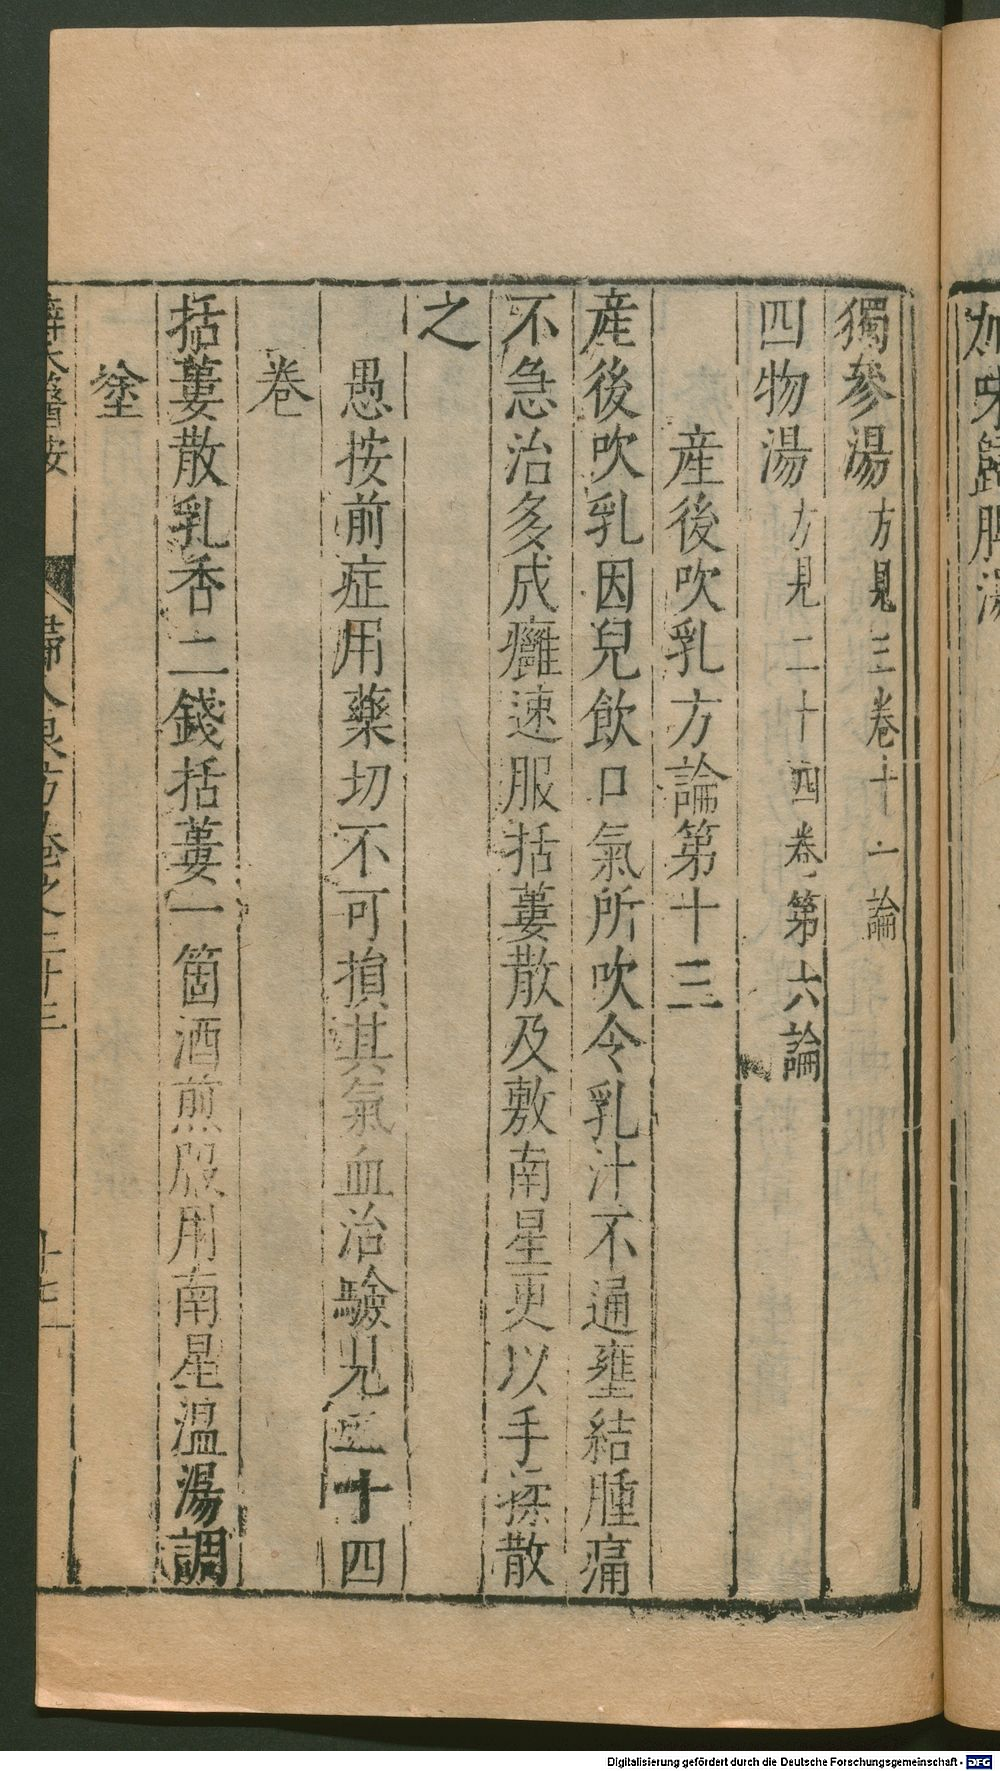 獨參湯方見三卷十一論
四物湯方見二十四卷第六論
産後吹乳方論第十三
産後吹乳因兒飲口氣所吹令乳汁不通壅結腫痛
不急治多成癰速服括蔞散及敷南星更以手揉散
之
愚按前症用藥切不可損其氣血治驗見二十四
卷
括蔞散乳香二錢括蔞一箇酒煎服用南星温湯調
塗
薛太醫按 婦人良方卷之二十三 十七
加味歸脾湯
Digitalisierung gefördert durch die Deutsche Forschungsgemeinschaft - DFG